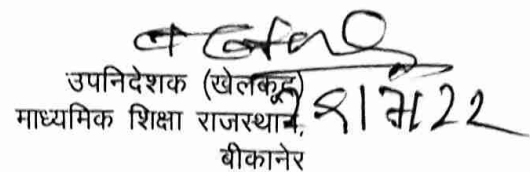 उपनिदेशक (खेलकूद)
माध्यमिक शिक्षा राजस्थान,
बीकानेर